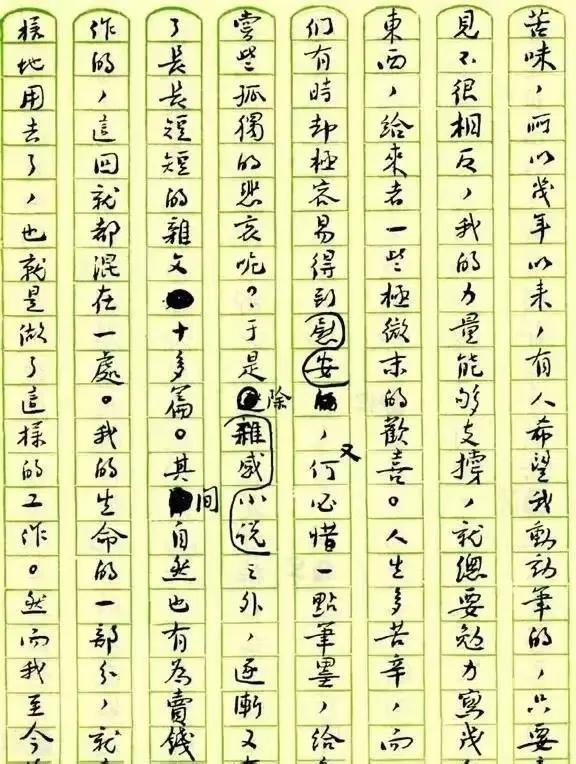 苦味，所以幾年以来，有人希望我動動筆的，只要
見不很相反，我的力量能够支撐，就總要勉力寫幾
東西，給來者一些極微末的歡喜。人生多苦辛，而
们有時却極容易得到慰安，又何必惜一點筆墨，給
嘗些孤獨的悲哀呢？于是除雜感小说之外，逐漸又
了長長短短的雜文十多篇。其间自然也有為賣錢
作的，這回就都混在一處。我的生命的一部分，就
樣地用去了，也就是做了這樣的工作。然而我至今